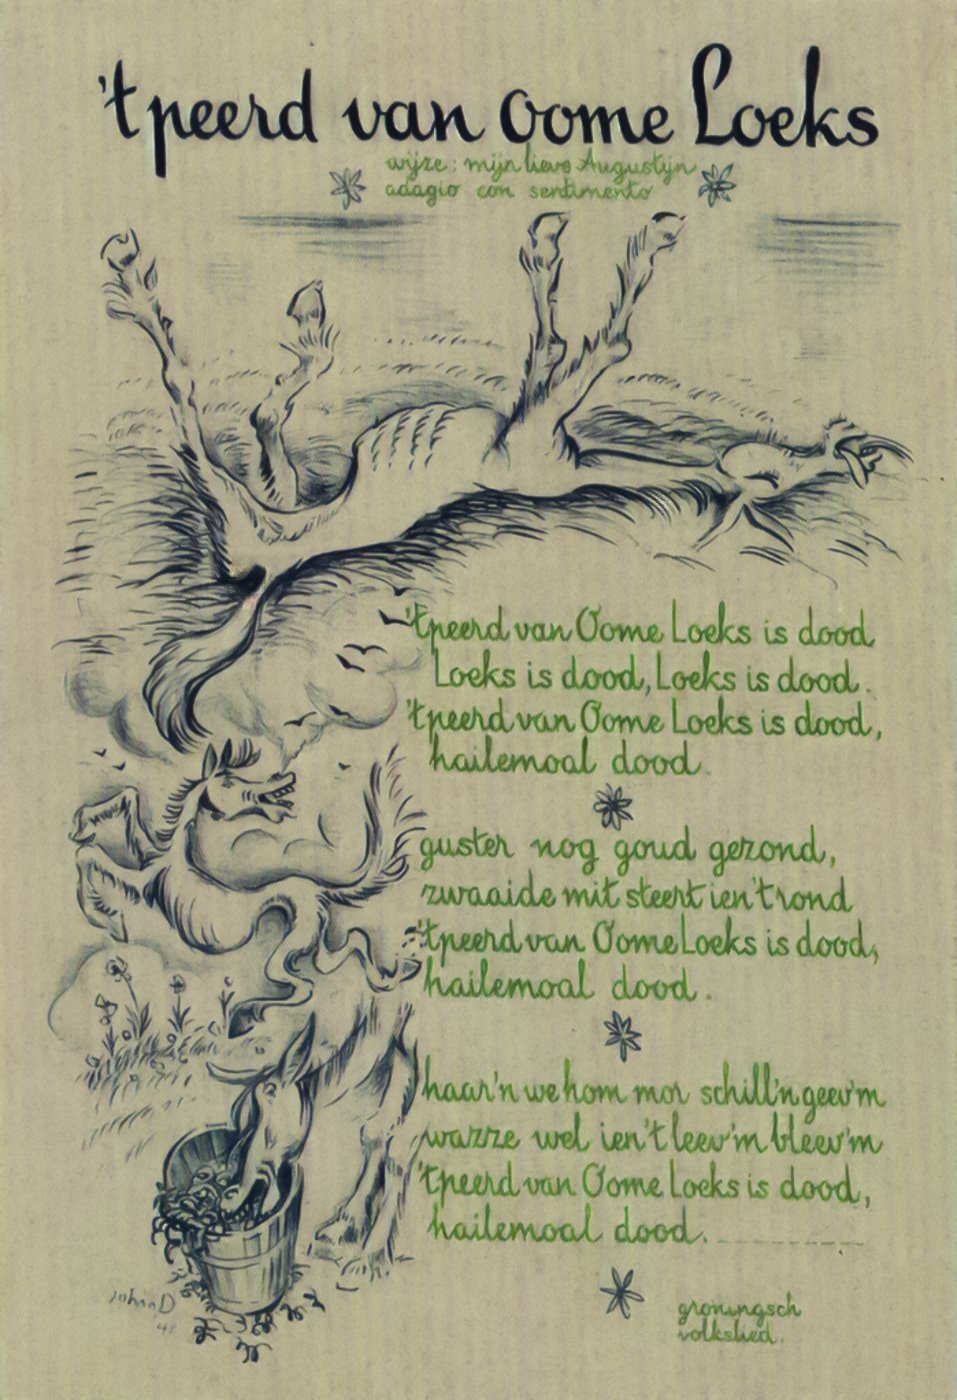 't peerd van oome Loeks
wijze: mijn lieve Augustijn
adagio con sentimento
't peerd van Oome Loeks is dood
Loeks is dood, Loeks is dood.
't peerd van Oome Loeks is dood,
hailemoal dood.
guster nog goud gezond,
zwaaide mit steert ien 't rond
't peerd van Oome Loeks is dood,
hailemoal dood.
haar'n we hom mor schill'n geev'm
wazze wel ien 't leev'm bleev'm
't peerd van Oome Loeks is dood,
hailemoal dood.
groningsch
volkslied.